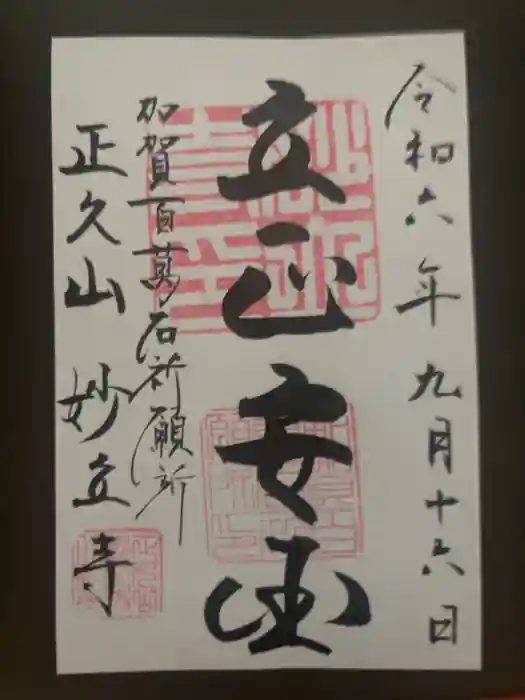 令和六年九月十六日
立正安国
加賀百萬石祈願所
正久山 妙立寺